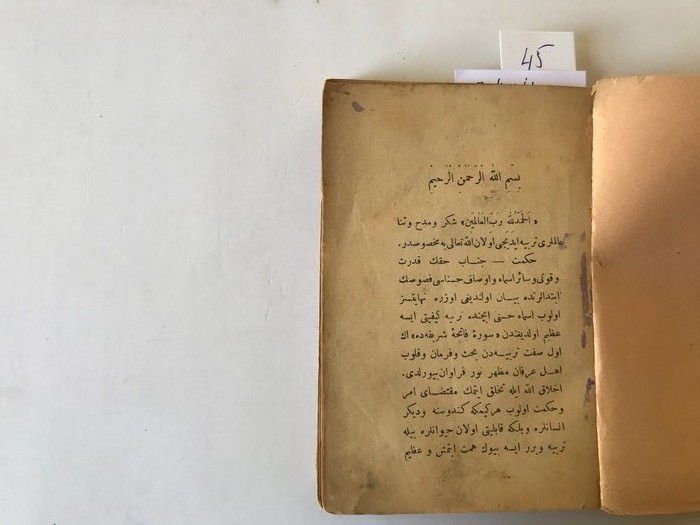 45
بِسْمِ اللّٰهِ الرَّحْمٰنِ الرَّحِيْمِ
«اَلْحَمْدُ لِلّٰهِ رَبِّ الْعَالَمِينَ» شكر ومدح وثنا
عالملرى تربيه ايديجى اولان الله تعالى يه مخصوصدر.
حكمت — جناب حقك قدرت
وقوتى وسائر اسماء واوصاف حسناسى فصوصك
ابتدالرنده بيان اولنديغى اوزره نهايتسز
اولوب اسماء حسنى ايچنده تربيه كيفيتى ايسه
عظيم اولديغندن «سورۀ فاتحۀ شريفه ده» اك
اول صفت تربيه دن بحث وفرمان وقلوب
اهل عرفان مظهر نور فراوان بيورلدى.
اخلاق الله ايله تخلق ايتمك مقتضاى امر
وحكمت اولوب هركيمكه كندوسنه وديكر
انسانلره وبلكه قابليتى اولان حيوانلره بيله
تربيه ويرر ايسه بيوك همت ايتمش و عظيم